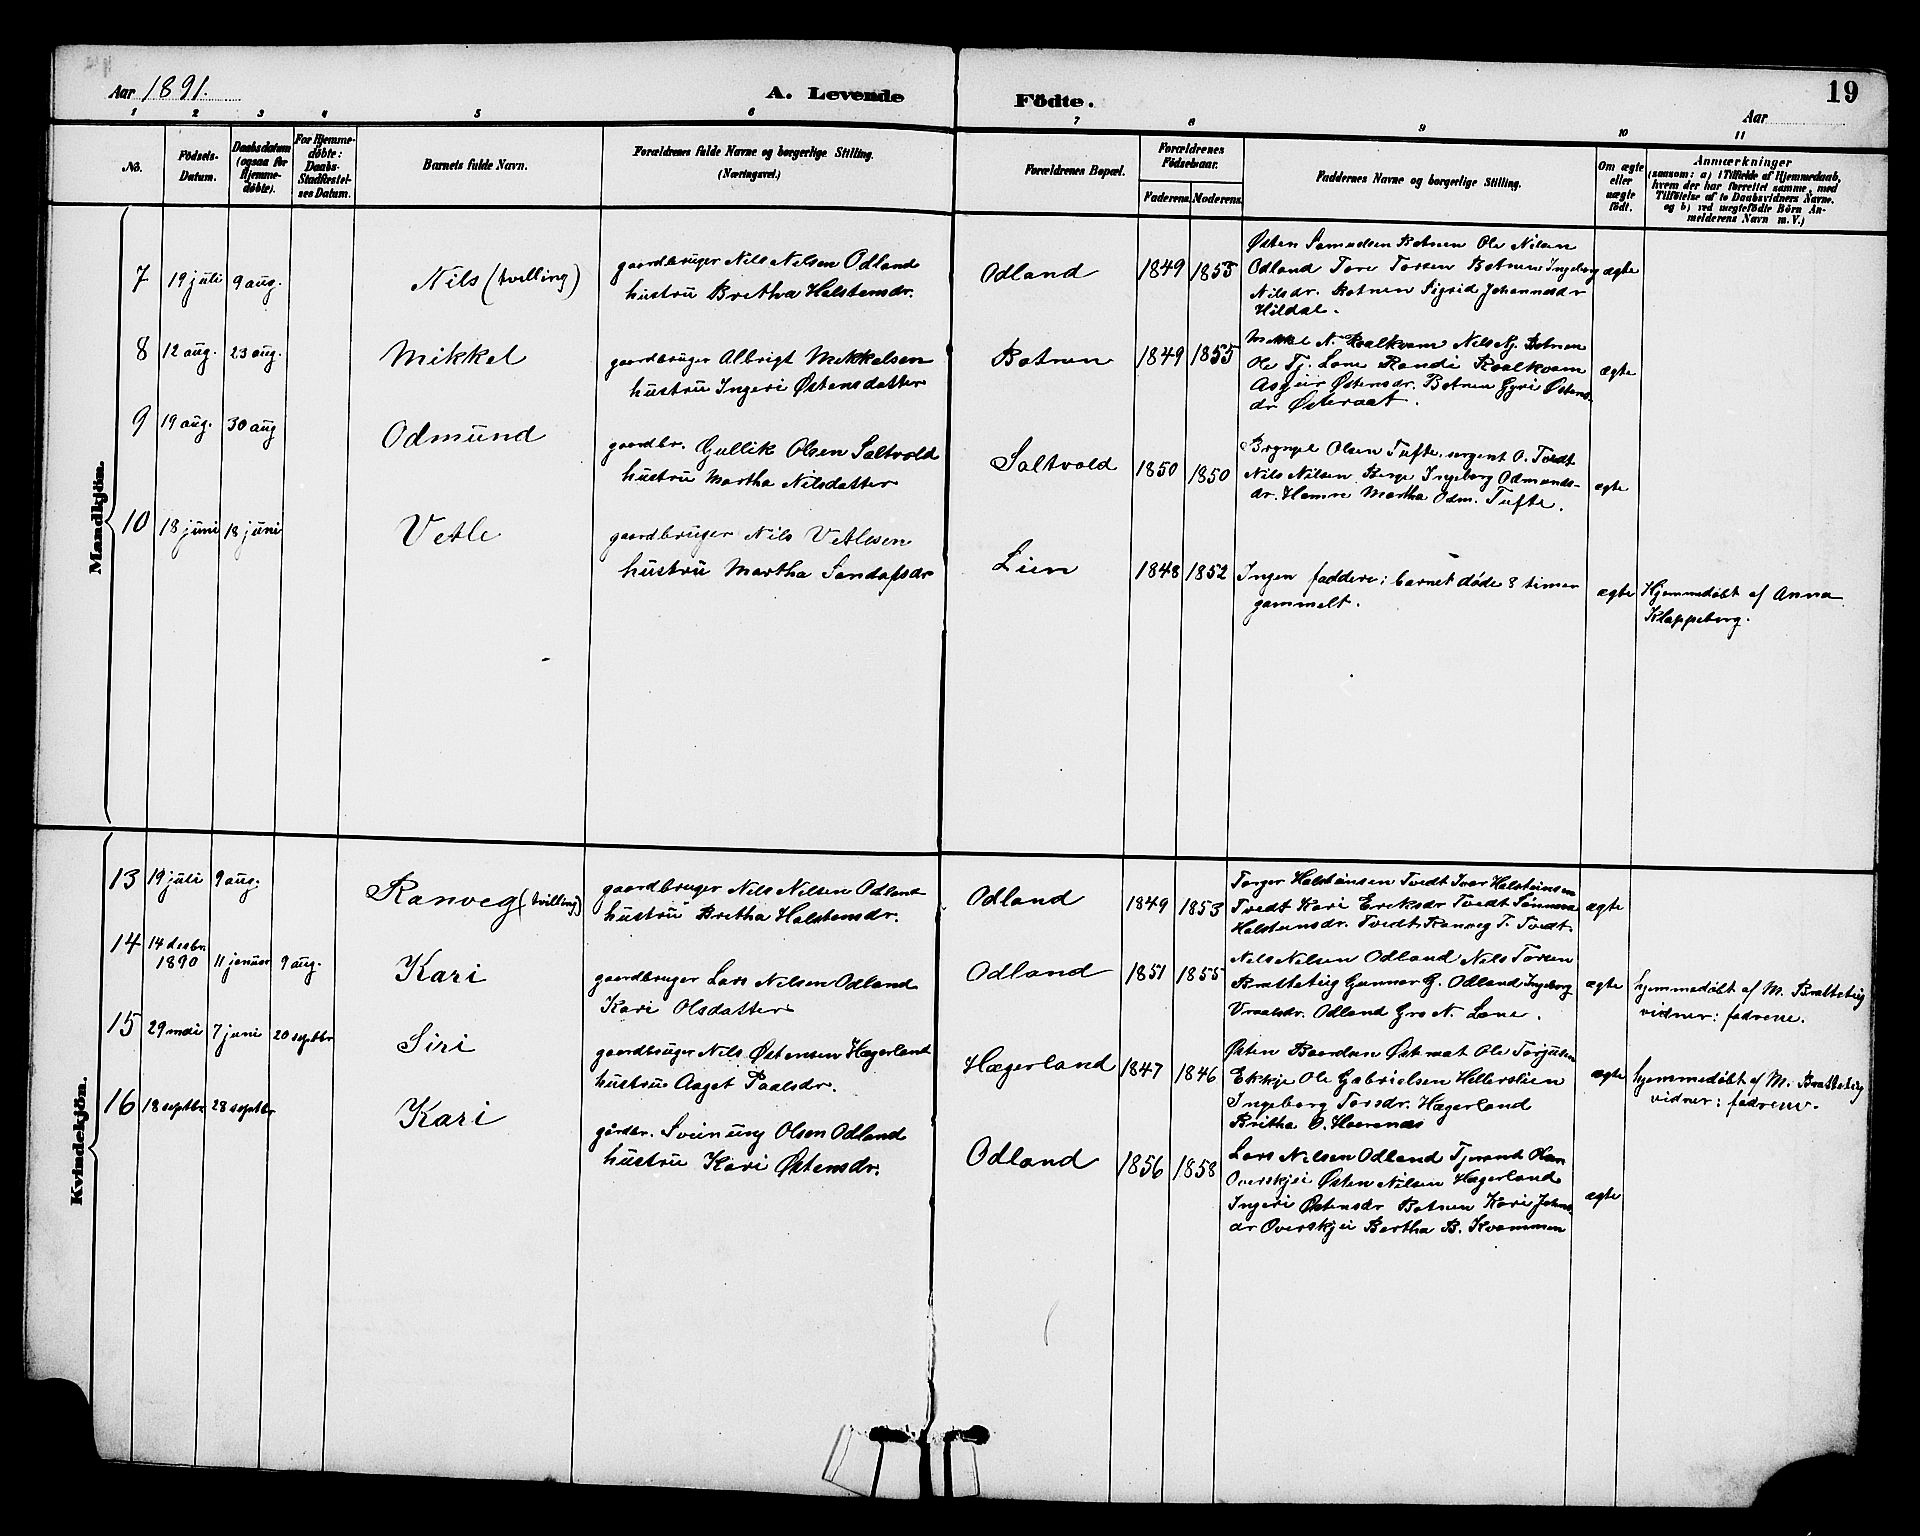 Aar 1891.
A. Levende Födte.
19
Aar
1 2 3 4 5 6 7 8 9 10 11
No.
Födsels-
Datum.
Daabsdatum
(ogsaa for
Hjemme-
døbte).
For Hjemme-
døbte:
Daabs-
Stadfæstel-
ses Datum.
Barnets fulde Navn.
Forældrenes fulde Navne og borgerlige Stilling.
(Næringsvei.)
Forældrenes Bopæl.
Forældrenes
Födselsaar.
Faderens. Moderens.
Faddernes Navne og borgerlige Stilling.
Om ægte
eller
uægte
født.
Anmærkninger
(saasom: a) i Tilfælde af Hjemmedaab,
hvem der har forrettet samme, med
Tilföielse af to Daabsvidners Navne.
og b) ved uægtefödte Börn An-
melderens Navn m. V.)
Mandkjön.
7 19 juli 9 aug.
Nils (tvilling)
gaardbruger Nils Nilsen Odland
hustru Bretha Halstensdr.
Odland 1849 1853
Østen Samuelsen Botnen Ole Nilsen
Odland Tore Torsen Botnen Ingeborg
Nilsdr. Botnen Sigrid Johannesdr
Hildal.
ægte
8 12 aug. 23 aug.
Mikkel
gaardbruger Albrigt Mekkelsen
hustru Ingeri Østensdatter
Botnen 1849 1855
Mekkel N. Roalkvam Nils Nj. Botnen
Ole Tj. Lone Randi Roalkvam
Asgeir Østensdr. Botnen Gyri Østens-
dr Østeraat.
ægte
9 19 aug. 30 aug
Odmund
gaardbr. Gullik Olsen Saltvold
hustru Martha Nilsdatter
Saltvold 1850 1850
Brynjel Olsen Tufte, O. Tvedt
Nils Nilsen Berge Ingeborg Odmunds-
dr. Hamre Martha Odm. Tufte.
ægte
10 18 juni 18 juni
Vetle
gaardbruger Nils Vetlesen
hustru Martha Sandafsdr
Lien 1848 1852
Ingen faddere; barnet døde 8 timer
gammelt.
ægte
Hjemmedøbt af Anna
Klappeberg.
Kvindekjön.
13 19 juli 9 aug.
Ranveg (tvilling)
gaardbruger Nils Nilsen Odland
hustru Bretha Halstensdr.
Odland 1849 1853
Torger Halstensen Tvedt Ivar Halsteinsen
Tvedt Kari Eriksdr Tvedt Sønneva
Halsteinsdr. Tvedt Ranveg T. Tvedt.
ægte
14 14 desbr. 1890 11 januar 9 aug.
Kari
gaardbruger Lars Nilsen Odland
Kari Olsdatter
Odland 1851 1855
Nils Nilsen Odland Nils Torsen
Bratteteig Gunnar G. Odland Ingeborg
Vraalsdr. Odland Gro N. Lone.
ægte
hjemmedøbt af M. Bratteteig
vidner: fadrene.
15 29 mai 7 juni 20 septbr
Siri
gaardbruger Nils Østensen Hægerland
hustru Aaget Paalsdr.
Hægerland 1847 1846
Østen Baardsen Østeraat Ole Torjusen
Ekkje Ole Gabrielsen Hellerslien
Ingeborg Torsdr. Hægerland
Britha O. Haarenæs
ægte
hjemmedøbt af M. Bratteteig
vidner: fadrene.
16 18 septbr 28 septbr
Kari
gårdbr. Sveinung Olsen Odland
hustru Kari Østensdr.
Odland 1856 1858
Lars Nilsen Odland Tjerant Olsen
Overskjei Østen Nilsen Hægerland
Ingeri Østensdr Botnen Kari Johns-
dr Overskjei Bertha B. Kvammen
ægte